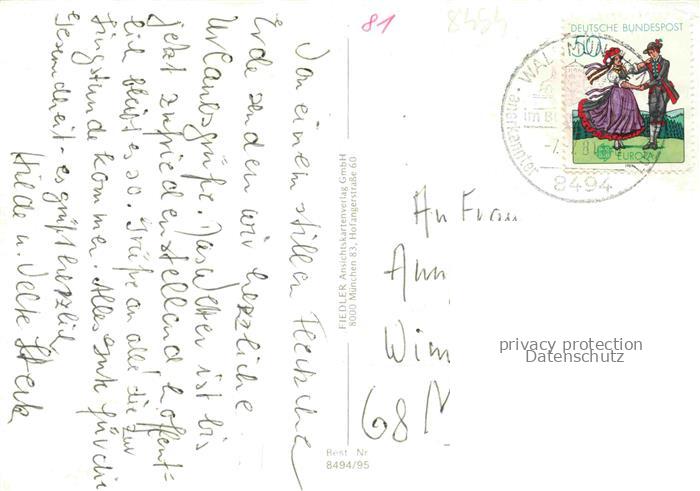 81
8494
Von einem stillen Fleckchen
Erde senden wir herzliche
Urlaubsgrüße. Das Wetter ist bis
jetzt zufriedenstellend hoffent=
lich bleibt es so. Grüße an alle die zur
Singstunde kommen. Alles Gute für die
Gesundheit - es grüßt herzlich
Hilde u.
FIEDLER Ansichtskartenverlag GmbH
8000 München 83, Hofangerstraße 60
Best. Nr.
8494/95
DEUTSCHE BUNDESPOST
50
EUROPA
WALDMÜN
im B
81
8494
anerkannter
An Frau
Ann
Wim
68
privacy protection
Datenschutz